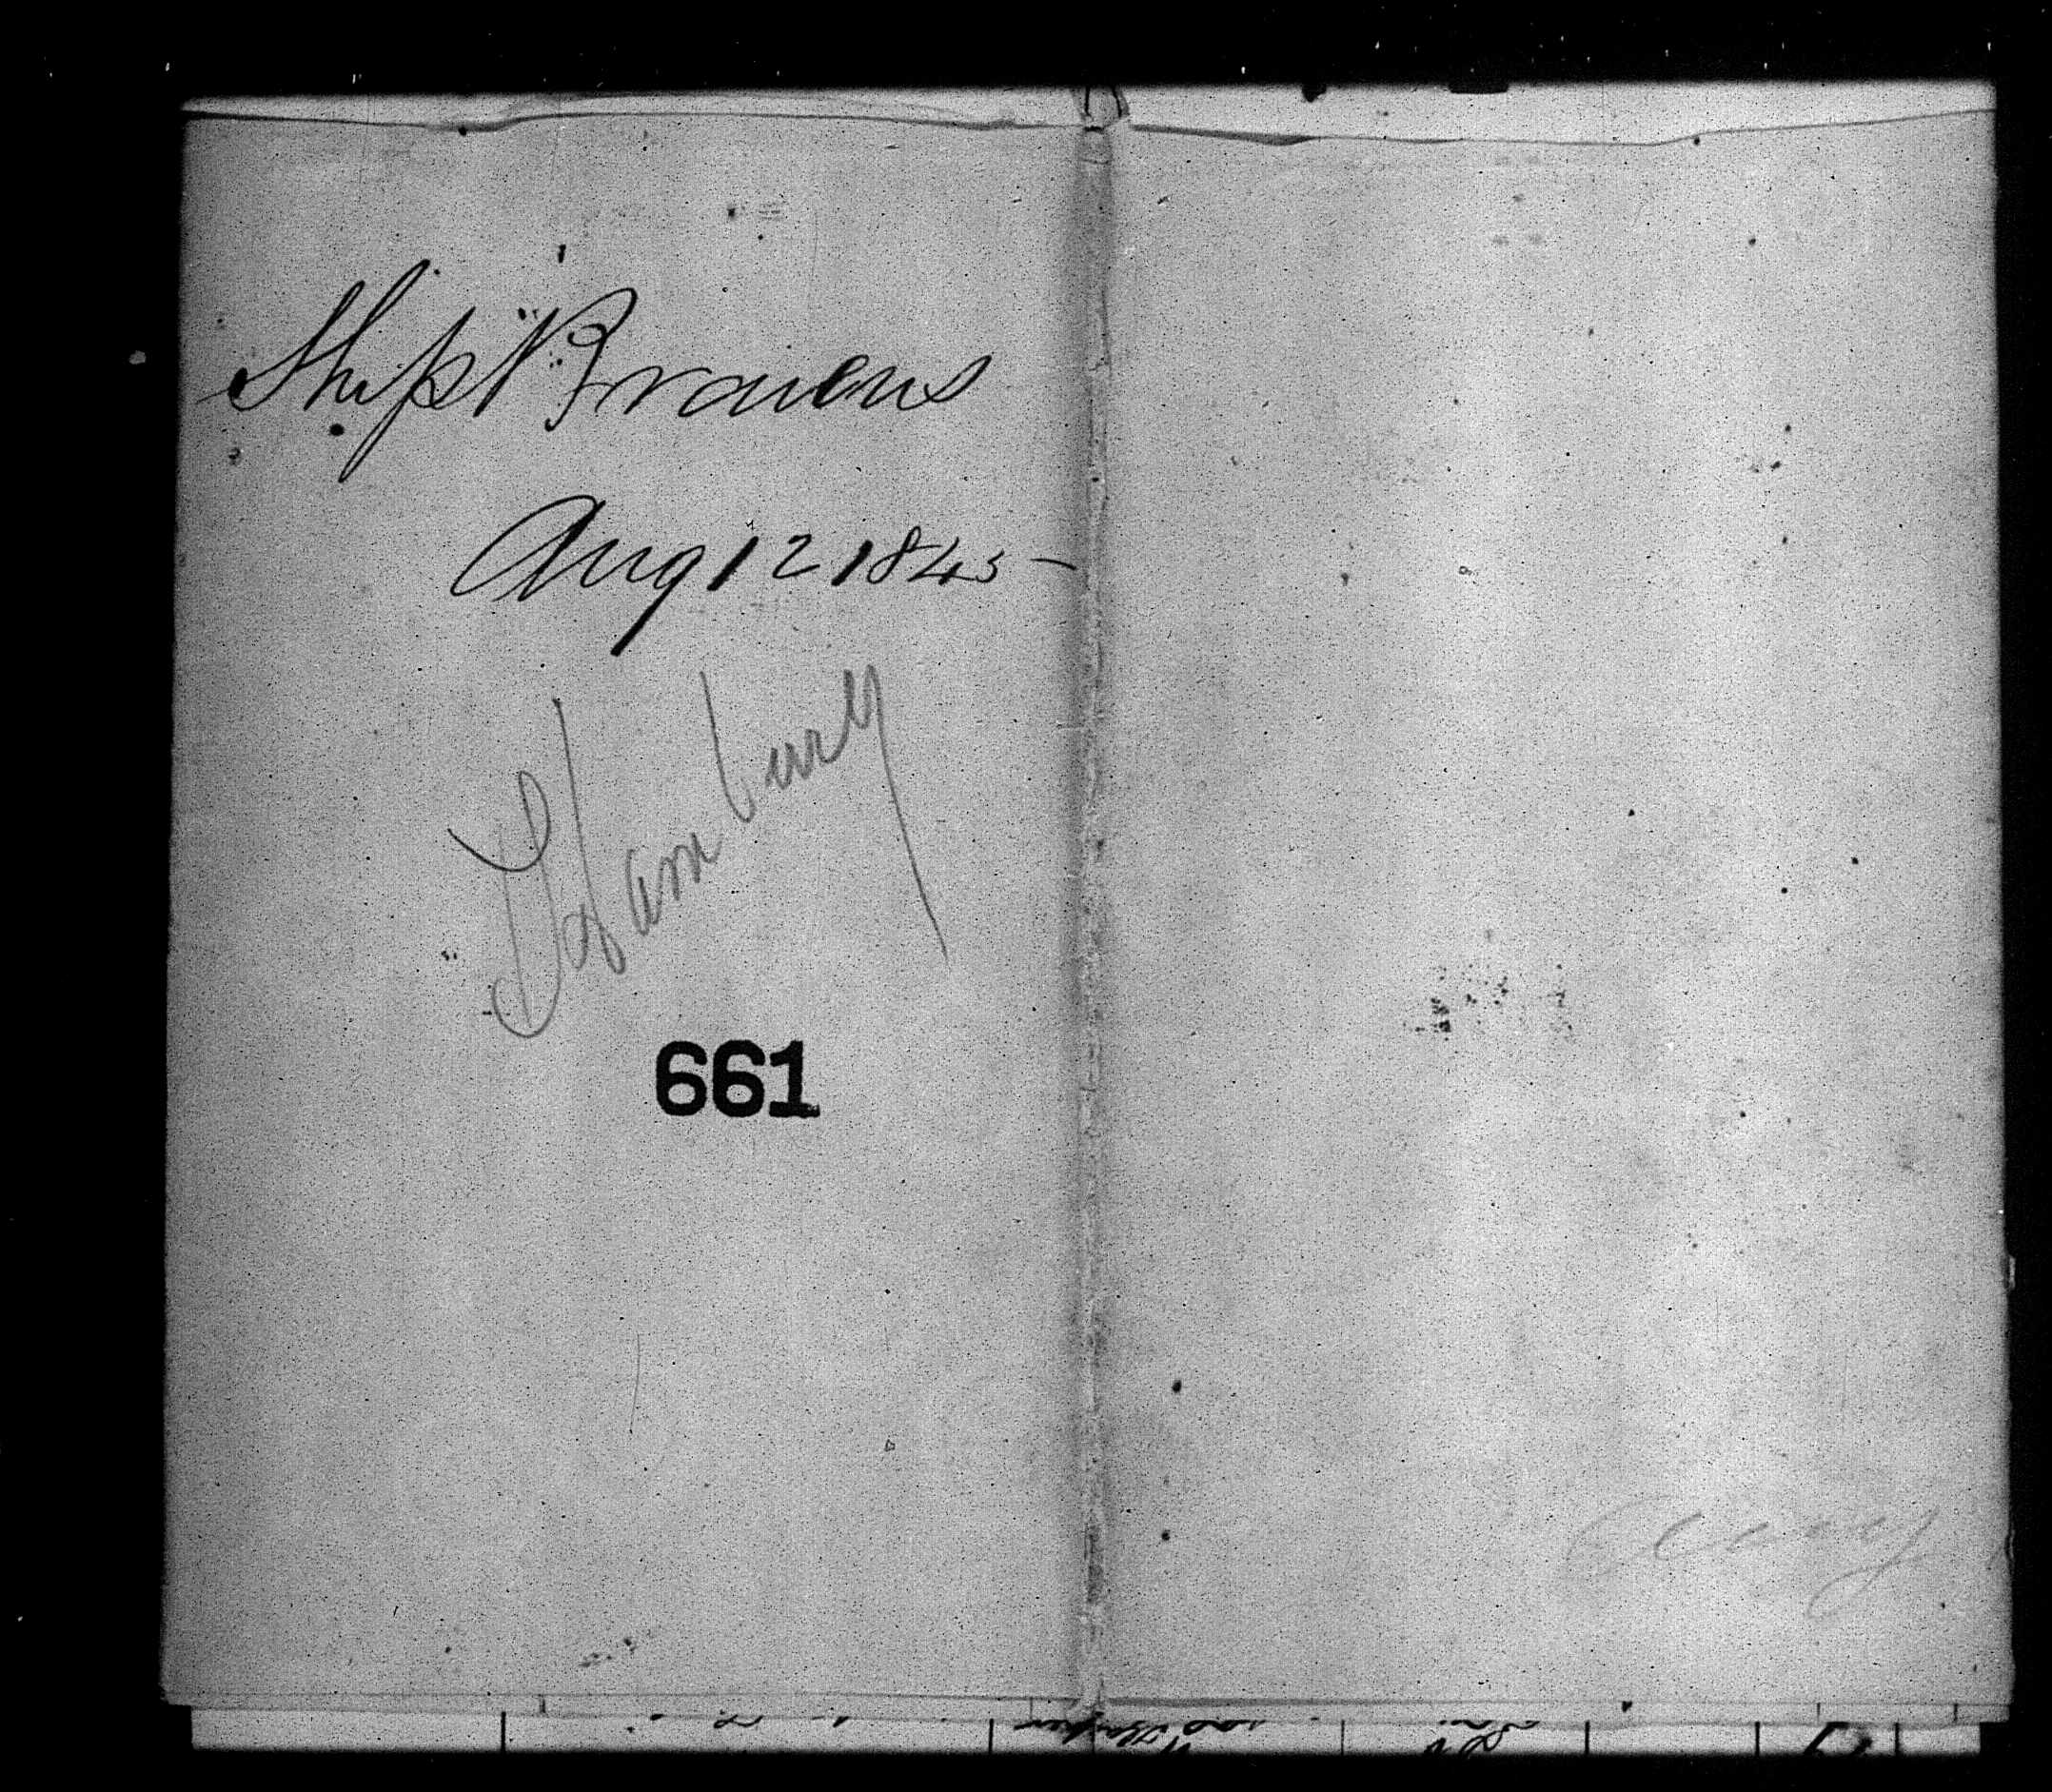 Ship "Bravens
Aug 12 1845
Hamburg
661